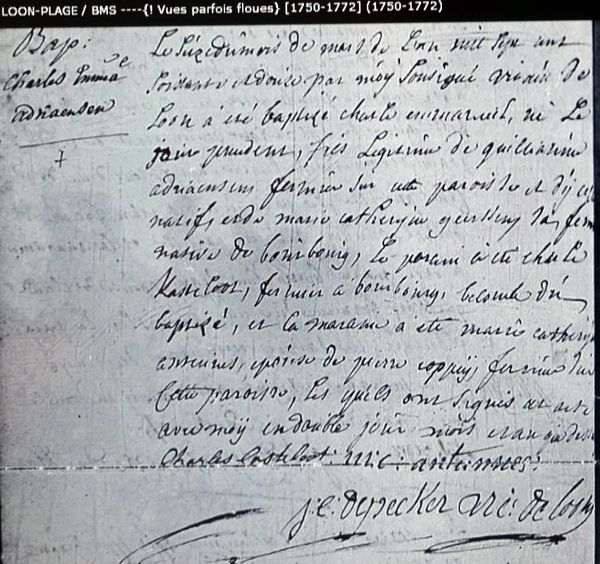 LOON-PLAGE / BMS ----{! Vues parfois floues} [1750-1772] (1750-1772)
Bap:
Charles Emma e
adriaensen
Le seize du mois de mars de l'an mil sept cent
soixante et douze par moy sousigné vicair de
Loon a été baptizé charle emmanuel, né le
jour precedent, fils legitime de guilliaume
adriaensen fermier sur cette paroisse et d'ycy
natif, et de marie catherine sa fem
native de bourbourg, le parain a été charle
Kasteloot, fermier a bourbourg, du
baptizé, et la maraine a été marie catherine
anteunes, epouse de pierre coppey, fermier sur
cette paroisse, les quels ont signés cet acte
avec moy en double jour mois et an que dessus
Charles Casteloot. M: C: anteunnes:
j. e. depecker vic: de loon